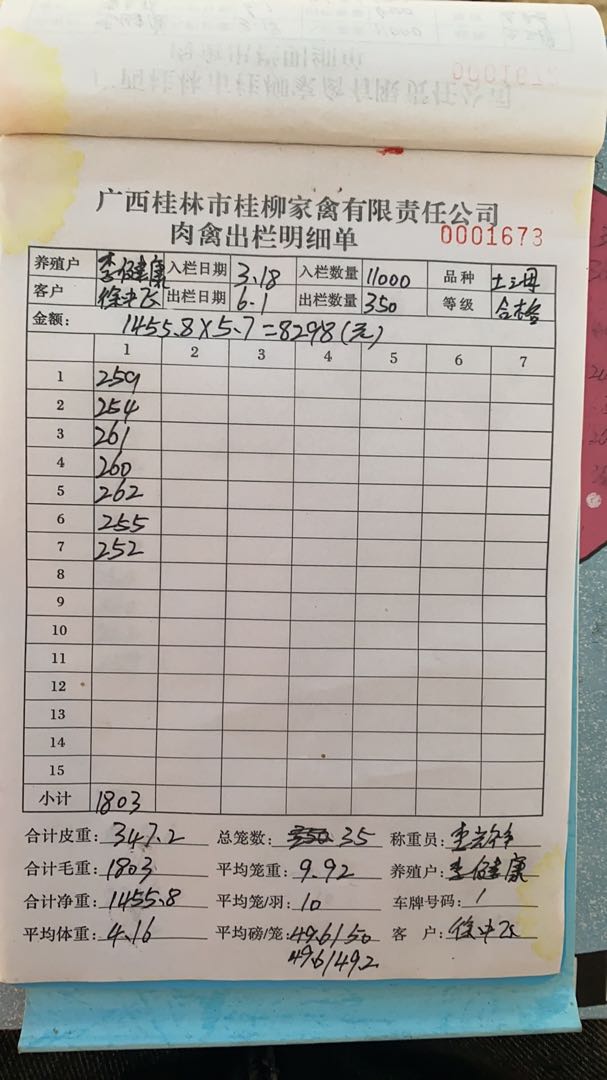 广西桂林市桂柳家禽有限责任公司
肉禽出栏明细单 0001673
养殖户 李健康 入栏日期 3.18 入栏数量 11000 品种 土三母
客户 徐中飞 出栏日期 6.1 出栏数量 350 等级 合格
金额: 1455.8×5.7=8298(元)
1 2 3 4 5 6 7
1 259
2 254
3 261
4 260
5 262
6 255
7 252
8
9
10
11
12
13
14
15
小计 1803
合计皮重: 347.2 总笼数: 35 称重员:
合计毛重: 1803 平均笼重: 9.92 养殖户: 李健康
合计净重: 1455.8 平均笼/羽: 10 车牌号码: /
平均体重: 4.16 平均磅/笼: 49.6/50 客 户: 徐中飞
49.6/49.2